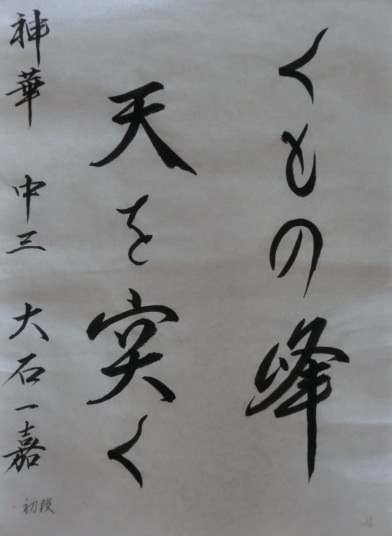 くもの峰
天を突く
神華 中三 大石一嘉
初段